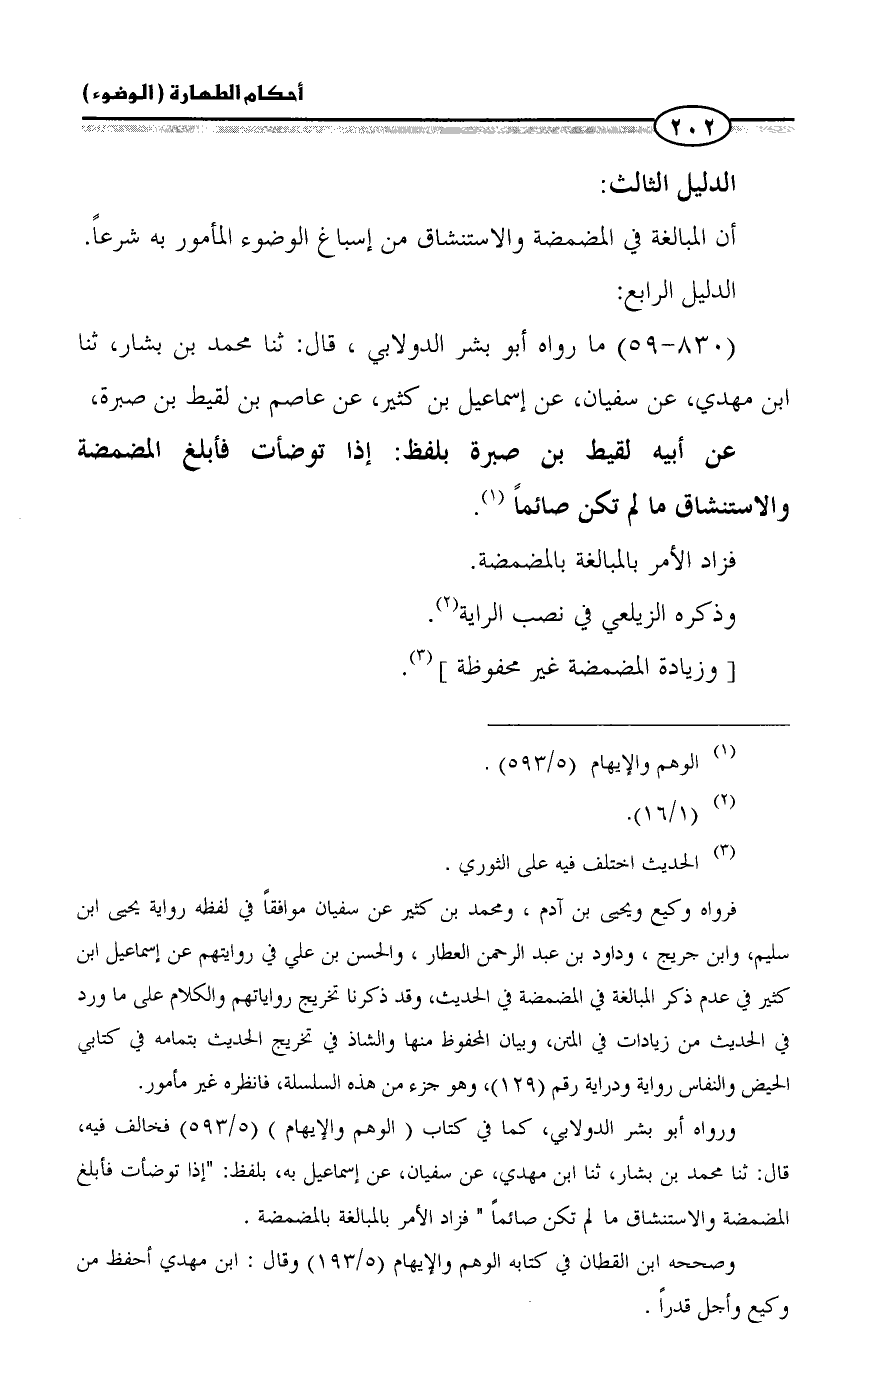 أحكام الطهارة (الوضوء)
٢٠٢
الدليل الثالث:
أن المبالغة في المضمضة والاستنشاق من إسباغ الوضوء المأمور به شرعاً.
الدليل الرابع:
(٨٣٠-٥٩) ما رواه أبو بشر الدولابي ، قال: ثنا محمد بن بشار، ثنا
ابن مهدي، عن سفيان، عن إسماعيل بن كثير، عن عاصم بن لقيط بن صبرة،
عن أبيه لقيط بن صبرة بلفظ: إذا توضأت فأبلغ المضمضة
والاستنشاق ما لم تكن صائماً (١).
فزاد الأمر بالمبالغة بالمضمضة.
وذكره الزيلعي في نصب الراية(٢).
[ وزيادة المضمضة غير محفوظة ](٣).
(١) الوهم والإيهام (٥٩٣/٥) .
(٢) (١٦/١).
(٣) الحديث اختلف فيه على الثوري .
فرواه وكيع ويحيى بن آدم ، ومحمد بن كثير عن سفيان موافقاً في لفظه رواية يحيى ابن
سليم، وابن جريج ، وداود بن عبد الرحمن العطار ، والحسن بن علي في روايتهم عن إسماعيل ابن
كثير في عدم ذكر المبالغة في المضمضة في الحديث، وقد ذكرنا تخريج رواياتهم والكلام على ما ورد
في الحديث من زيادات في المتن، وبيان المحفوظ منها والشاذ في تخريج الحديث بتمامه في كتابي
الحيض والنفاس رواية ودراية رقم (١٢٩)، وهو جزء من هذه السلسلة، فانظره غير مأمور.
ورواه أبو بشر الدولابي، كما في كتاب ( الوهم والإيهام ) (٥٩٣/٥) فخالف فيه،
قال: ثنا محمد بن بشار، ثنا ابن مهدي، عن سفيان، عن إسماعيل به، بلفظ: "إذا توضأت فأبلغ
المضمضة والاستنشاق ما لم تكن صائماً " فزاد الأمر بالمبالغة بالمضمضة .
وصححه ابن القطان في كتابه الوهم والإيهام (١٩٣/٥) وقال : ابن مهدي أحفظ من
وكيع وأجل قدراً .